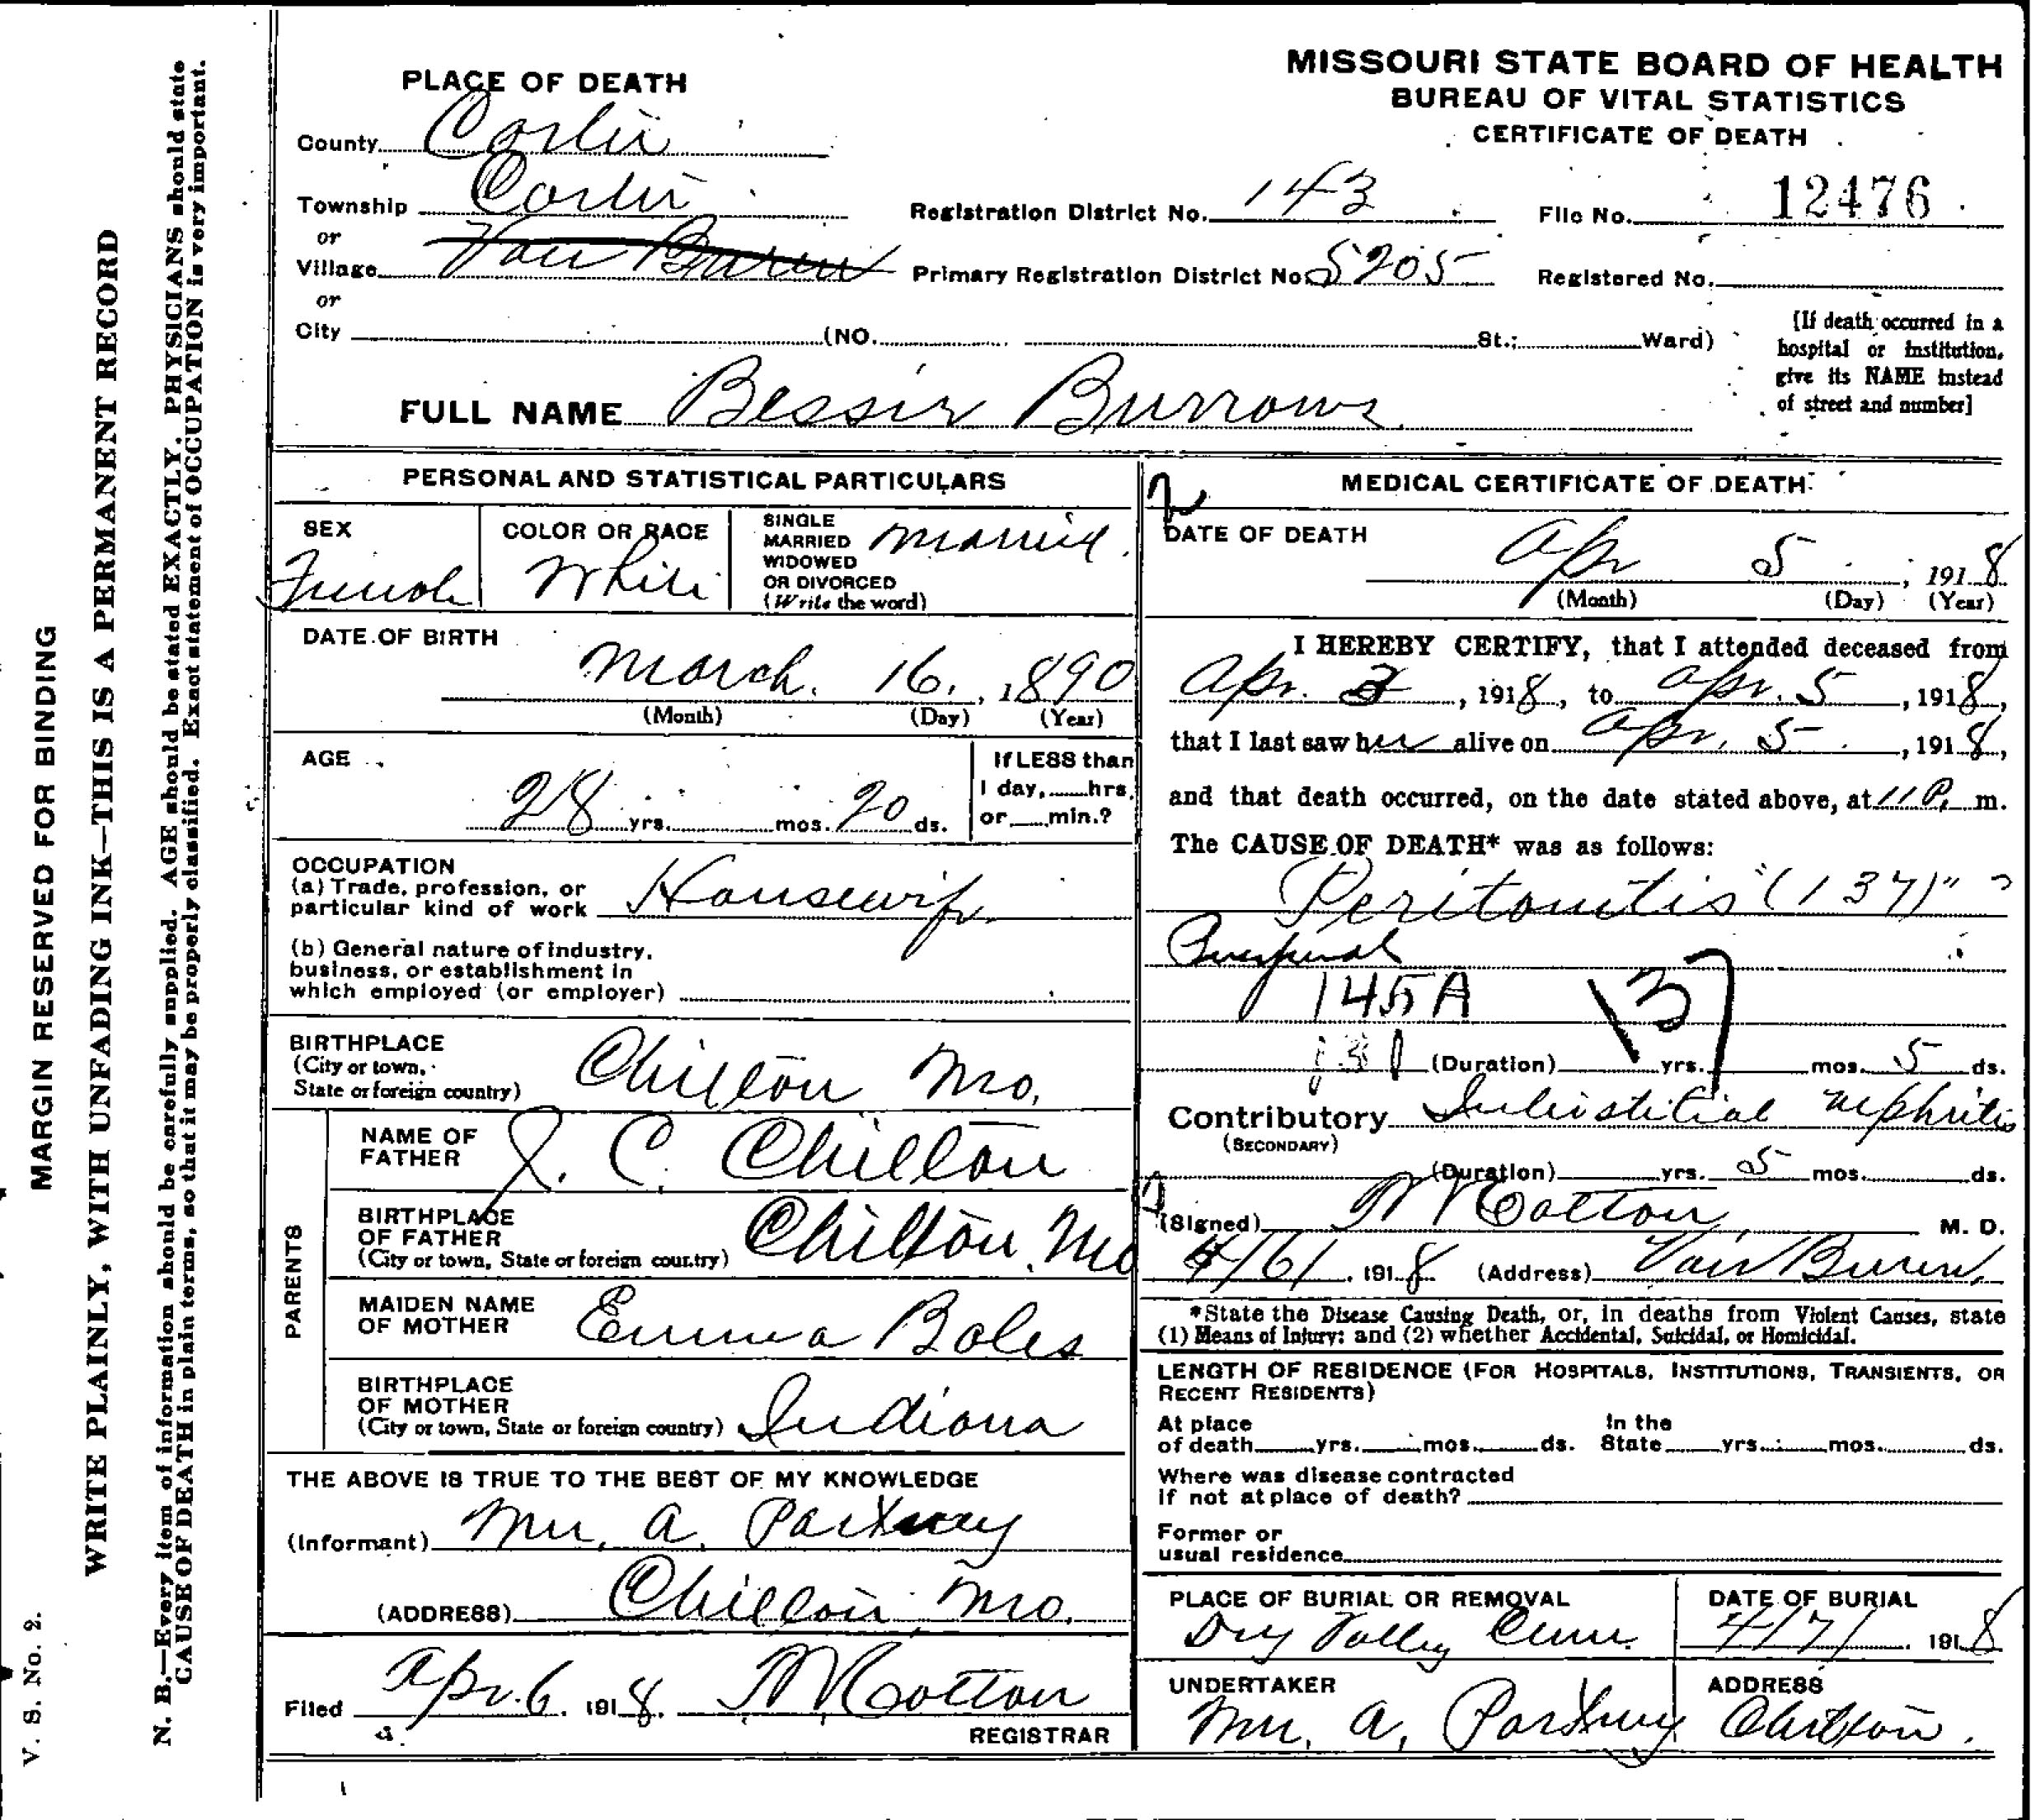 MARGIN RESERVED FOR BINDING
WRITE PLAINLY, WITH UNFADING INK—THIS IS A PERMANENT RECORD
N. B.—Every item of information should be carefully supplied. AGE should be stated EXACTLY. PHYSICIANS should state
CAUSE OF DEATH in plain terms, so that it may be properly classified. Exact statement of OCCUPATION is very important.
V. S. No. 2.
MISSOURI STATE BOARD OF HEALTH
BUREAU OF VITAL STATISTICS
CERTIFICATE OF DEATH
PLACE OF DEATH
County Carter
Township Carter Registration District No. 143 File No. 12476
or
Village Van Buren Primary Registration District No. 5205 Registered No.
or
City (NO. St.; Ward)
[If death occurred in a
hospital or institution,
give its NAME instead
of street and number]
FULL NAME Bessie Burrows
PERSONAL AND STATISTICAL PARTICULARS
SEX
Female
COLOR OR RACE
White
SINGLE
MARRIED
WIDOWED
OR DIVORCED
(Write the word)
Married
DATE OF BIRTH
March 16, 1890
(Month) (Day) (Year)
AGE
28 yrs. mos. 20 ds.
If LESS than
1 day, hrs.
or min.?
OCCUPATION
(a) Trade, profession, or
particular kind of work Housewife
(b) General nature of industry,
business, or establishment in
which employed (or employer)
BIRTHPLACE
(City or town,
State or foreign country) Chilton Mo.
PARENTS
NAME OF
FATHER J. C. Chilton
BIRTHPLACE
OF FATHER
(City or town, State or foreign country) Chilton, Mo
MAIDEN NAME
OF MOTHER Emma Boles
BIRTHPLACE
OF MOTHER
(City or town, State or foreign country) Indiana
THE ABOVE IS TRUE TO THE BEST OF MY KNOWLEDGE
(Informant) A.
(ADDRESS) Chilton, Mo.
Filed Apr. 6, 1918. Cotton
REGISTRAR
MEDICAL CERTIFICATE OF DEATH
2
DATE OF DEATH
Apr 5, 1918
(Month) (Day) (Year)
I HEREBY CERTIFY, that I attended deceased from
Apr. 3, 1918, to Apr. 5, 1918,
that I last saw her alive on Apr. 5, 1918,
and that death occurred, on the date stated above, at 11 P. m.
The CAUSE OF DEATH* was as follows:
Peritonitis "(137)" ?
Puerperal
145A 137
(Duration) yrs. mos. 5 ds.
Contributory Interstitial nephritis
(SECONDARY)
(Duration) yrs. 5 mos. ds.
(Signed) Cotton M. D.
4/6/, 1918 (Address) Van Buren,
*State the Disease Causing Death, or, in deaths from Violent Causes, state
(1) Means of Injury; and (2) whether Accidental, Suicidal, or Homicidal.
LENGTH OF RESIDENCE (FOR HOSPITALS, INSTITUTIONS, TRANSIENTS, OR
RECENT RESIDENTS)
At place
of death yrs. mos. ds.
In the
State yrs. mos. ds.
Where was disease contracted
if not at place of death?
Former or
usual residence
PLACE OF BURIAL OR REMOVAL
Dry Valley Cem.
DATE OF BURIAL
4/7/, 1918
UNDERTAKER
A.
ADDRESS
Chilton.